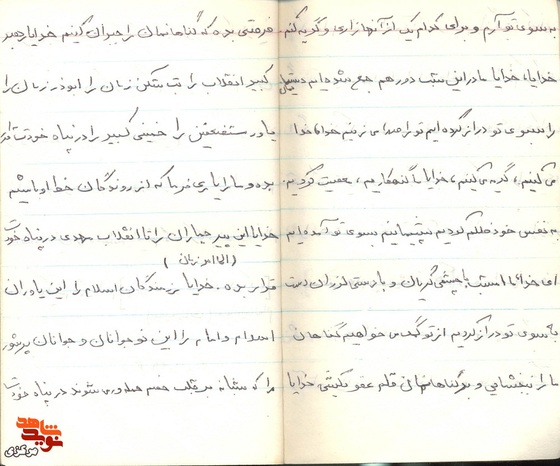 به سوی تو آرم و برای کدام یک از آنها زاری و گریه کنم
خدایا، خدایا ما در این شب دور هم جمع شده‌ایم دستهایمان
را بسوی تو دراز کرده ایم تو را صدا می زنیم خدا خدا
می کنیم، گریه می کنیم، خدایا ما گنهکاریم، معصیت کرده‌ایم
به نفس خود ظلم کردیم پشیمانیم بسوی تو آمده‌ایم
ای خدا ما امشب با چشمی گریان و با دستی لرزان دست
به سوی تو دراز کردیم از تو کمک می خواهیم گناهان
ما را ببخشایی و بر گناهانمان قلم عفو بکشی خدایا
فرصتی بده که گناهانمان را جبران کنیم خدایا رهبر
کبیر انقلاب را بت شکن زمان را ابوذر زمان را
یاور مستضعفین را خمینی کبیر را در پناه خودت
بده و ما را یاری فرما که از روندگان خط او باشیم
خدایا این پیر جماران را تا انقلاب مهدی در پناه خودت
(امام زمان)
قرار بده. خدایا رزمندگان اسلام را این یاوران
اسلام و امام را این نوجوانان و جوانان پرشور
را که شبانه بر قلب خصم حمله‌ور می شوند در پناه خودت
شاهد
نوید
مرکزی